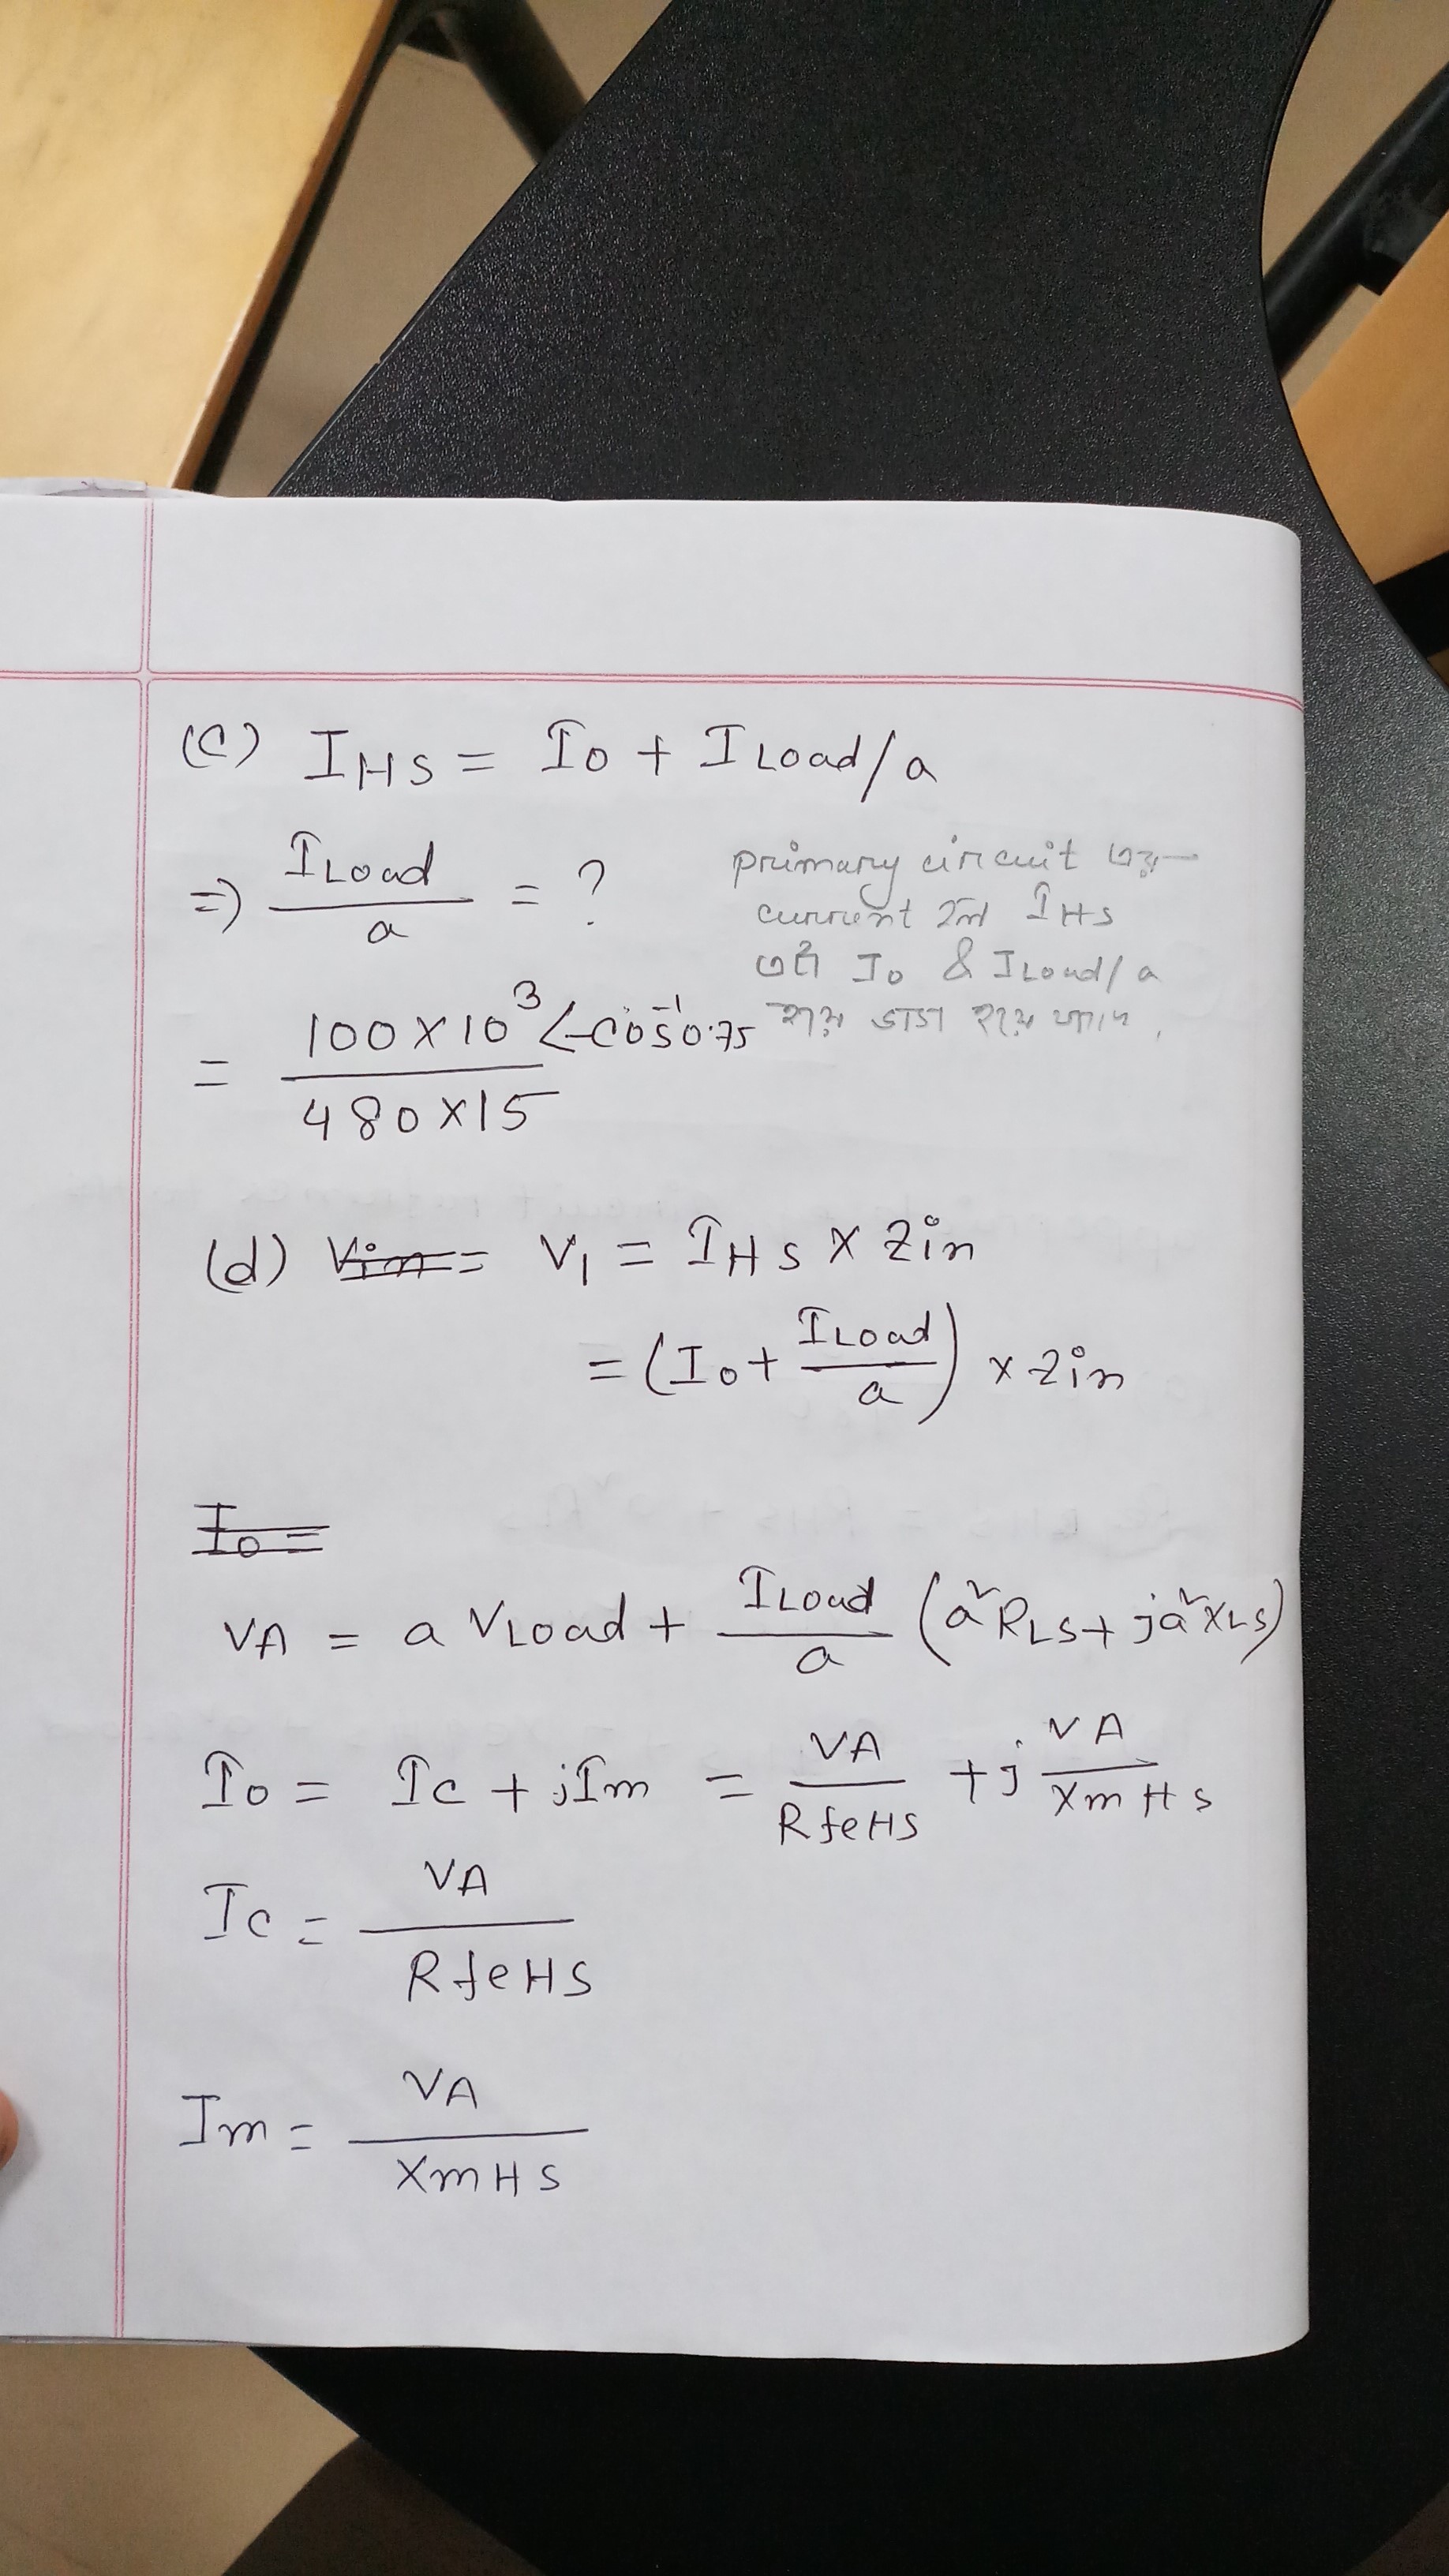 (C) IHS = I0 + ILoad/a
=> ILoad/a = ?
primary circuit এর
current হল IHS
এটা I0 & ILoad/a
= 100 × 10³ ∠-cos⁻¹0.75 / 480 × 15
(d) V̶i̶n̶ = V₁ = IHS × Zin
= (I0 + ILoad/a) × Zin
I̶0̶ ̶=̶
VA = a VLoad + ILoad/a (a²RLS + ja²XLS)
I0 = Ic + jIm = VA/RfeHS + j VA/XmHS
Ic = VA/RfeHS
Im = VA/XmHS